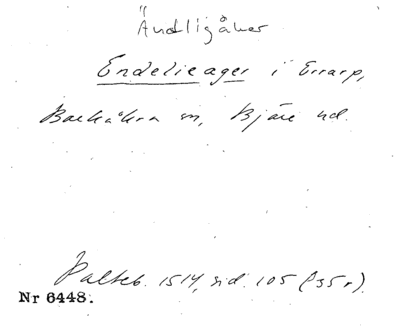 Ändligåker
Endelieager i Errarp,
Barkåkra sn, Bjäre hd.
Palteb. 1514, sid. 105 (55 r).
Nr 6448.